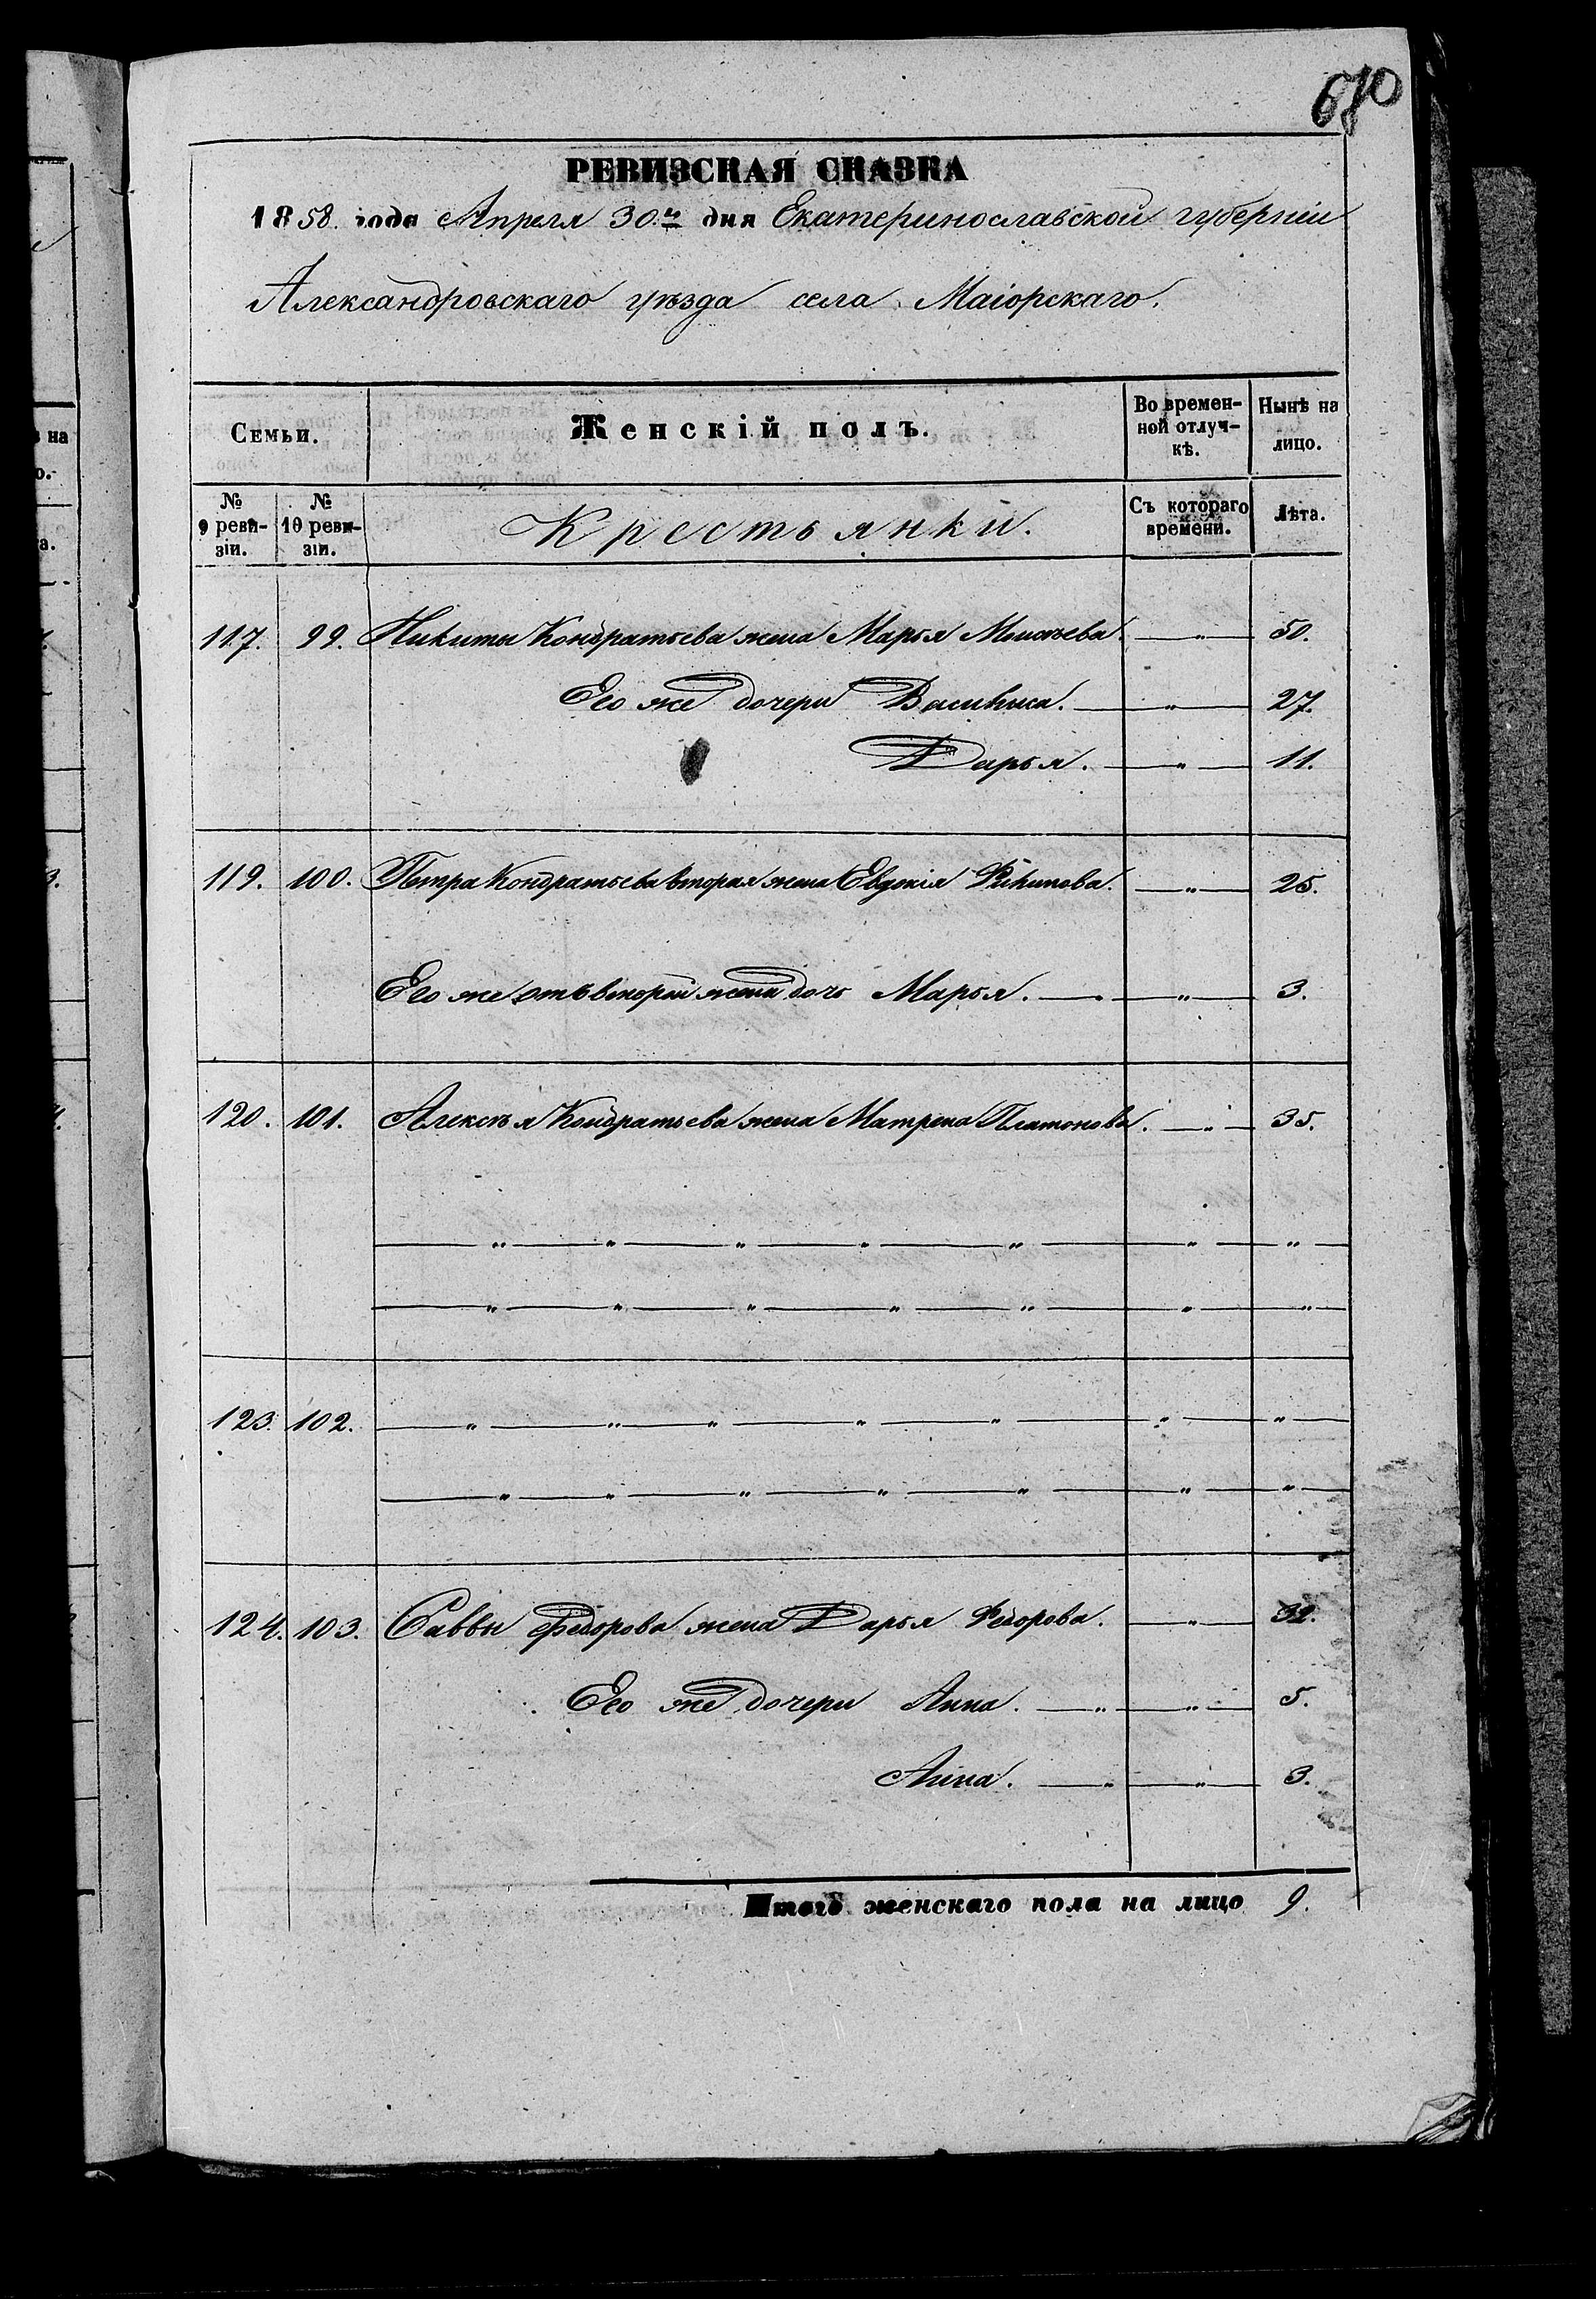 670
РЕВИЗСКАЯ СКАЗКА
1858. года Апреля 30.го дня Екатеринославской губерніи
Александровскаго уѣзда села Маіорскаго.
Семьи.
Женскій полъ.
Во временной отлучкѣ.
Нынѣ на лицо.
№ 9 ревизіи.
№ 10 ревизіи.
Крестьянки.
Съ котораго времени.
Лѣта.
117. 99. Никиты Кондратьева жена Марья Моисѣева. — " — 50.
Его же дочери Василиса. — " — 27.
Дарья. — " — 11.
119. 100. Петра Кондратьева вторая жена Евдокія Филипова. — " — 25.
Его же отъ второй жены дочь Марья. — " — " — 3.
120. 101. Алексѣя Кондратьева жена Матрена Платонова. — " — 35.
— " — " — " — " — " — " — " —
— " — " — " — " — " — " — " —
123. 102. — " — " — " — " — " — " — " —
— " — " — " — " — " — " — " —
124. 103. Саввы Федорова жена Дарья Федорова. — " — 32.
Его же дочери Анна. — " — " — 5.
Анна. — " — " — 3.
Итого женскаго пола на лицо 9.
на
о.
а.
3.